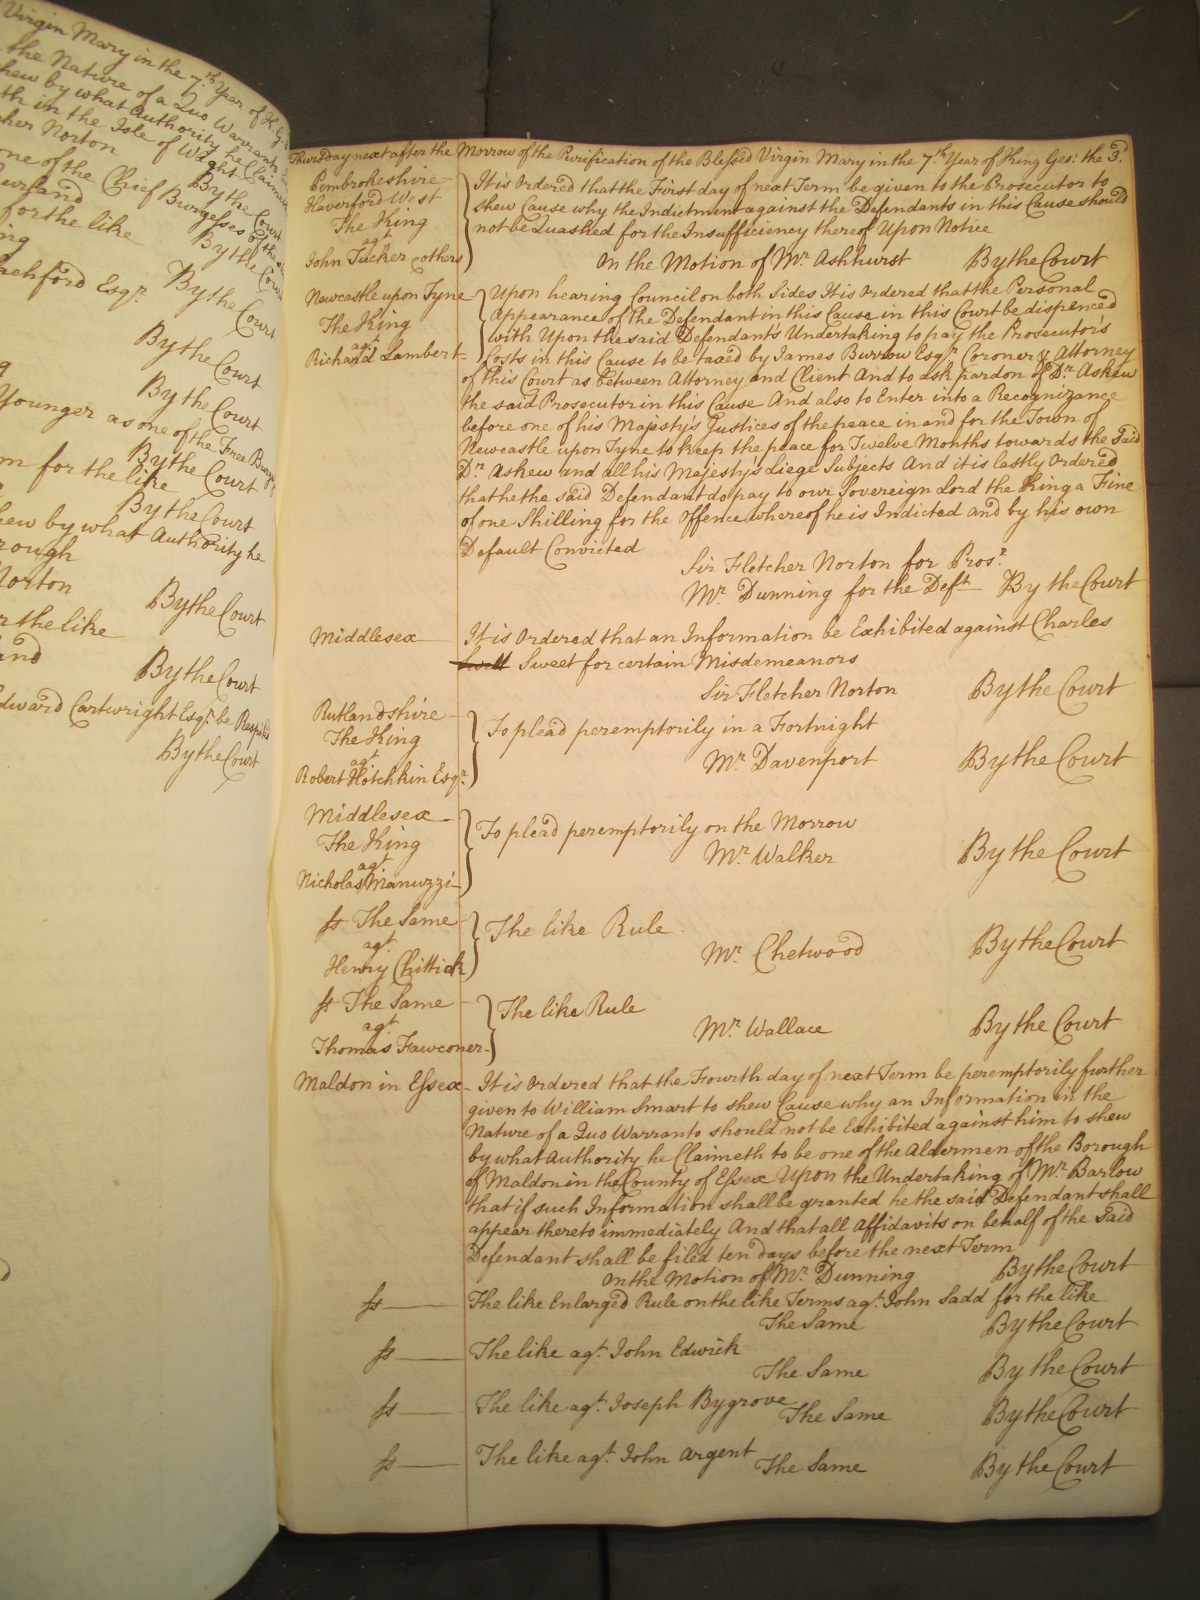 Virgin Mary in the 7.th Year of K. G
the Nature of a Quo Warranto
shew by what Authority he Claims
th in the Isle of Wight
her Norton By the Court
one of the Chief Burgesses of the
urland By the Court
for the like
ing By the Court
achford Esqr.
By the Court
By the Court
Younger as one of the Free Burg
By the Court
m for the like
By the Court
hew by what Authority he
rough
Norton By the Court
r the like
and By the Court
dward Cartwright Esqr. be Respited
By the Court
Thursday next after the Morrow of the Purification of the Blessed Virgin Mary in the 7.th Year of King Geo: the 3.d
Pembrokeshire
Haverford West
The King
agt.
John Tucker & others
It is Ordered that the First day of next Term be given to the Prosecutor to
shew Cause why the Indictment against the Defendants in this Cause should
not be Quashed for the Insufficiency thereof Upon Notice
On the Motion of Mr. Ashhurst By the Court
Newcastle upon Tyne
The King
agt.
Richard Lambert
Upon hearing Council on both Sides It is Ordered that the Personal
Appearance of the Defendant in this Cause in this Court be dispenced
with Upon the said Defendant's Undertaking to pay the Prosecutor's
Costs in this Cause to be taxed by James Burrow Esqr. Coroner & Attorney
of this Court as between Attorney and Client And to ask pardon of Dr. Askew
the said Prosecutor in this Cause And also to Enter into a Recognizance
before one of his Majesty's Justices of the peace in and for the Town of
Newcastle upon Tyne to keep the peace for Twelve Months towards the Said
Dr. Askew and all his Majesty's Liege Subjects And it is lastly Ordered
that he the said Defendant do pay to our Sovereign Lord the King a Fine
of one Shilling for the Offence whereof he is Indicted and by his own
Default Convicted
Sir Fletcher Norton for Prosr.
Mr. Dunning for the Deft. By the Court
Middlesex It is Ordered that an Information be Exhibited against Charles
Swett Sweet for certain Misdemeanors
Sir Fletcher Norton By the Court
Rutlandshire
The King
agt.
Robert Hotchkin Esqr.
To plead peremptorily in a Fortnight
Mr. Davenport By the Court
Middlesex
The King
agt.
Nicholas Manuzzi
To plead peremptorily on the Morrow
Mr. Walker By the Court
ss The Same
agt.
Henry Chittick
The like Rule
Mr. Chetwood By the Court
ss The Same
agt.
Thomas Fawconer
The like Rule
Mr. Wallace By the Court
Maldon in Essex It is Ordered that the Fourth day of next Term be peremptorily further
given to William Smart to shew Cause why an Information in the
Nature of a Quo Warranto should not be Exhibited against him to shew
by what Authority he Claimeth to be one of the Aldermen of the Borough
of Maldon in the County of Essex Upon the Undertaking of Mr. Barlow
that if such Information shall be granted he the said Defendant shall
appear thereto immediately And that all Affidavits on behalf of the Said
Defendant shall be filed ten days before the next Term
On the Motion of Mr. Dunning By the Court
ss The like Enlarged Rule on the like Terms agt. John Sadd for the like
The Same By the Court
ss The like agt. John Edwick
The Same By the Court
ss The like agt. Joseph Bygrove
The Same By the Court
ss The like agt. John Argent
The Same By the Court